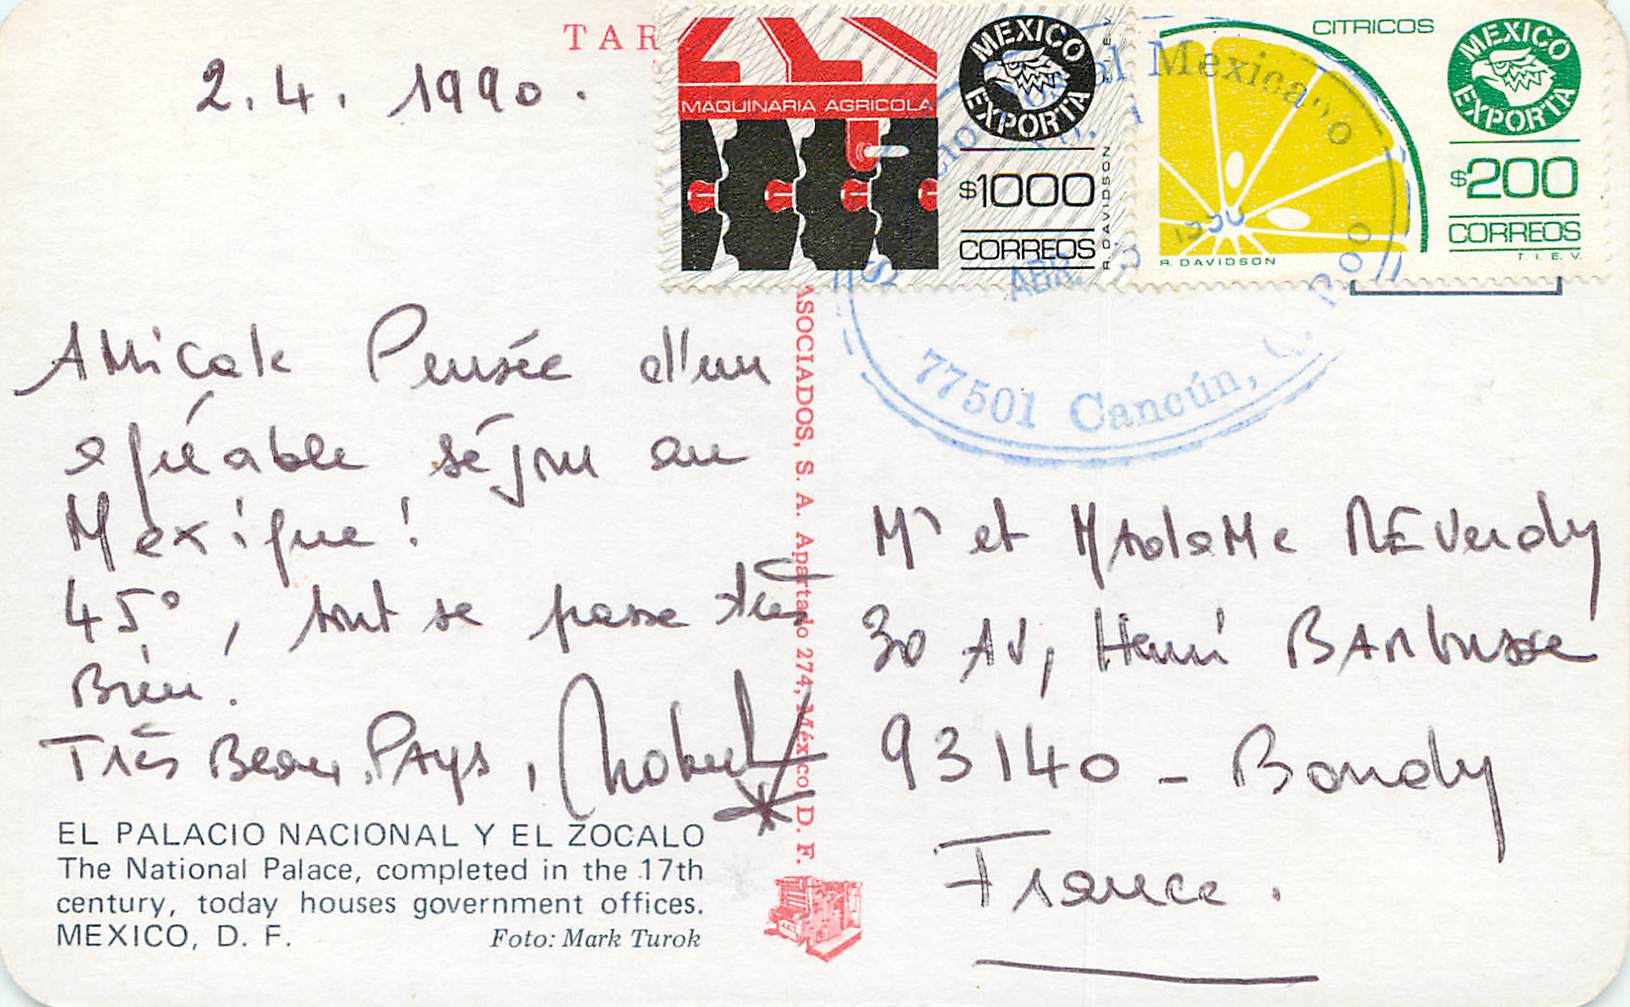 TAR
2.4. 1990.
MAQUINARIA AGRICOLA
MEXICO EXPORTA
$1000
CORREOS
R. DAVIDSON
CITRICOS
MEXICO EXPORTA
$200
CORREOS
R. DAVIDSON
T. I. E. V.
Mexicano
ABR. 1990
77501 Cancún, Roo
Amicale Pensée d'un
agréable séjour au
Mexique !
45°, tout se passe très
Bien.
Très Beau Pays,
EL PALACIO NACIONAL Y EL ZOCALO
The National Palace, completed in the 17th
century, today houses government offices.
MEXICO, D. F.
Foto: Mark Turok
ASOCIADOS, S. A. Apartado 274, México D. F.
Mr et MAdaMe REVerdy
30 AV, Henri BARbusse
93140 - Bondy
France.